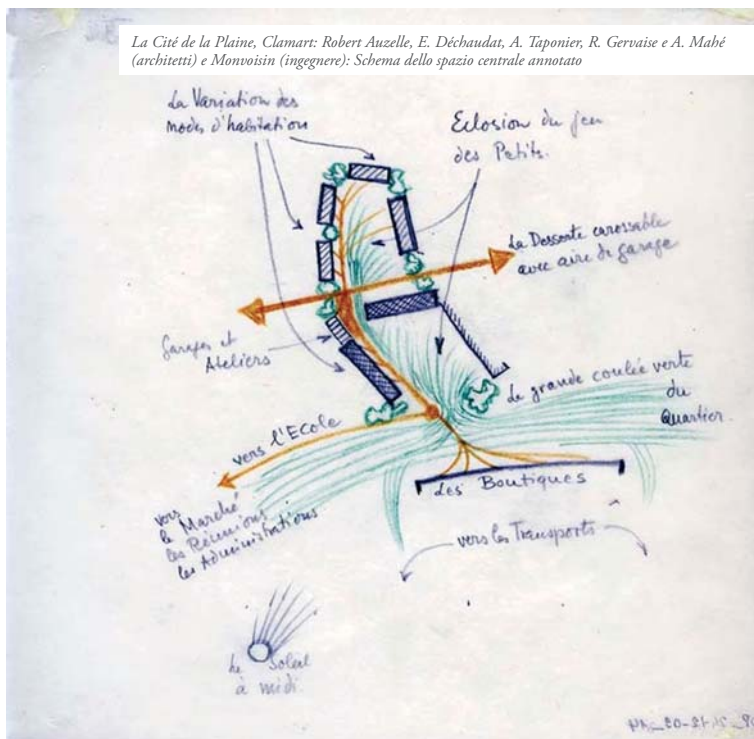 La Cité de la Plaine, Clamart: Robert Auzelle, E. Déchaudat, A. Taponier, R. Gervaise e A. Mahé
(architetti) e Monvoisin (ingegnere): Schema dello spazio centrale annotato
La Variation des
modes d'habitation
Eclosion du jeu
des Petits.
La Desserte carossable
avec aire de garage
Garages et
Ateliers
La grande coulée verte
du
Quartier.
vers l'Ecole
Les Boutiques
vers
le Marché
les Réunions
les Administrations
vers les Transports
Le Soleil
à midi.